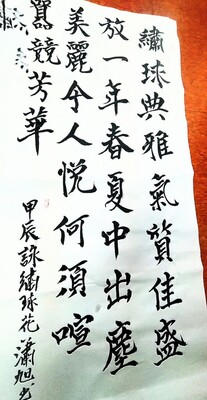 繡球典雅氣質佳盛
放一年春夏中出塵
美麗令人悅何須喧
鶩競芳華
甲辰詠繡球花瀟旭书